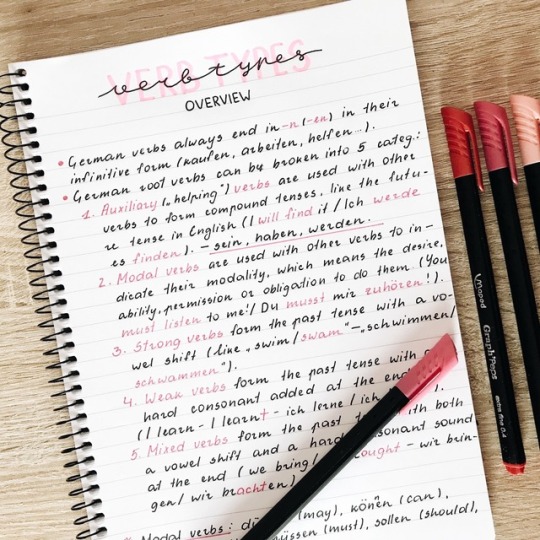 VERB TYPES
verb types
OVERVIEW
• German verbs always end in -n (-en) in their
infinitive form (kaufen, arbeiten, helfen...).
• German root verbs can be broken into 5 categ.:
1. Auxiliary („helping") verbs are used with other
verbs to form compound tenses, like the futu-
re tense in English (I will find it / Ich werde
es finden). – sein, haben, werden.
2. Modal verbs are used with other verbs to in-
dicate their modality, which means the desire,
ability, permission or obligation to do them (You
must listen to me! / Du musst mir zuhören!).
3. Strong verbs form the past tense with a vo-
wel shift (like „swim / swam" – „schwimmen /
schwammen").
4. Weak verbs form the past tense with a
hard consonant added at the end
(I learn - I learnt - ich lerne / ich ).
5. Mixed verbs form the past with both
a vowel shift and a hard consonant sound
at the end (we bring / ought - wir brin-
gen / wir brachten)
Modal verbs: (may), können (can),
müssen (must), sollen (should),
Maped Graph'Peps